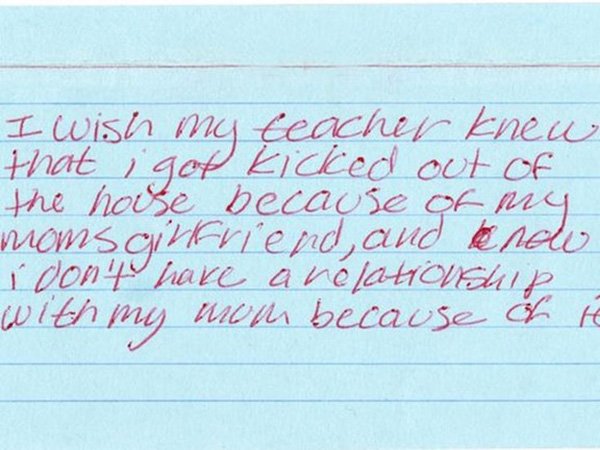 I wish my teacher knew
that i got kicked out of
the house because of my
moms girlfriend, and now
i don't have a relationship
with my mom because of it